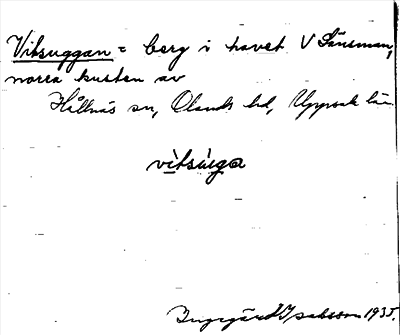 Vitsuggan = berg i havet V Länsman,
norra kusten av
Hållnäs sn, Olands hd, Uppsala län
vìtsùga
Ingegärd Isaksson 1935.